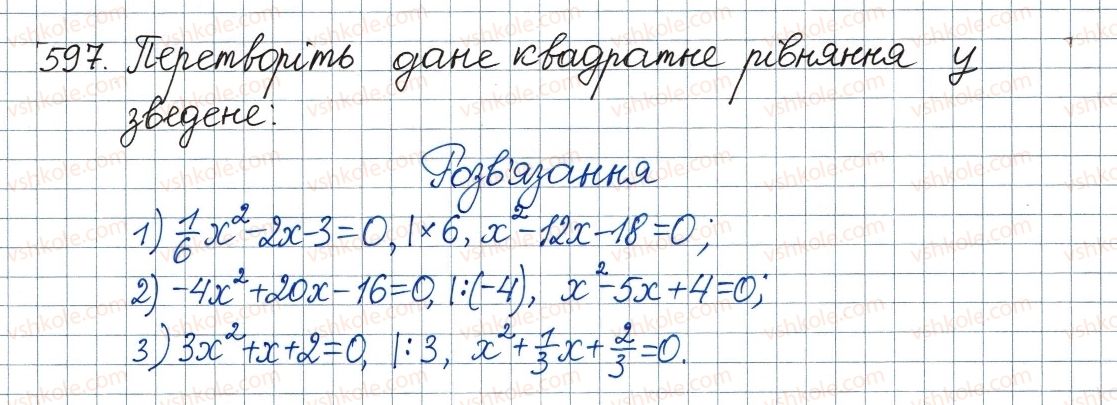 597. Перетворіть дане квадратне рівняння у
зведене:
Розв'язання
1) 1/6 x² - 2x - 3 = 0, | × 6, x² - 12x - 18 = 0;
2) -4x² + 20x - 16 = 0, | : (-4), x² - 5x + 4 = 0;
3) 3x² + x + 2 = 0, | : 3, x² + 1/3 x + 2/3 = 0.